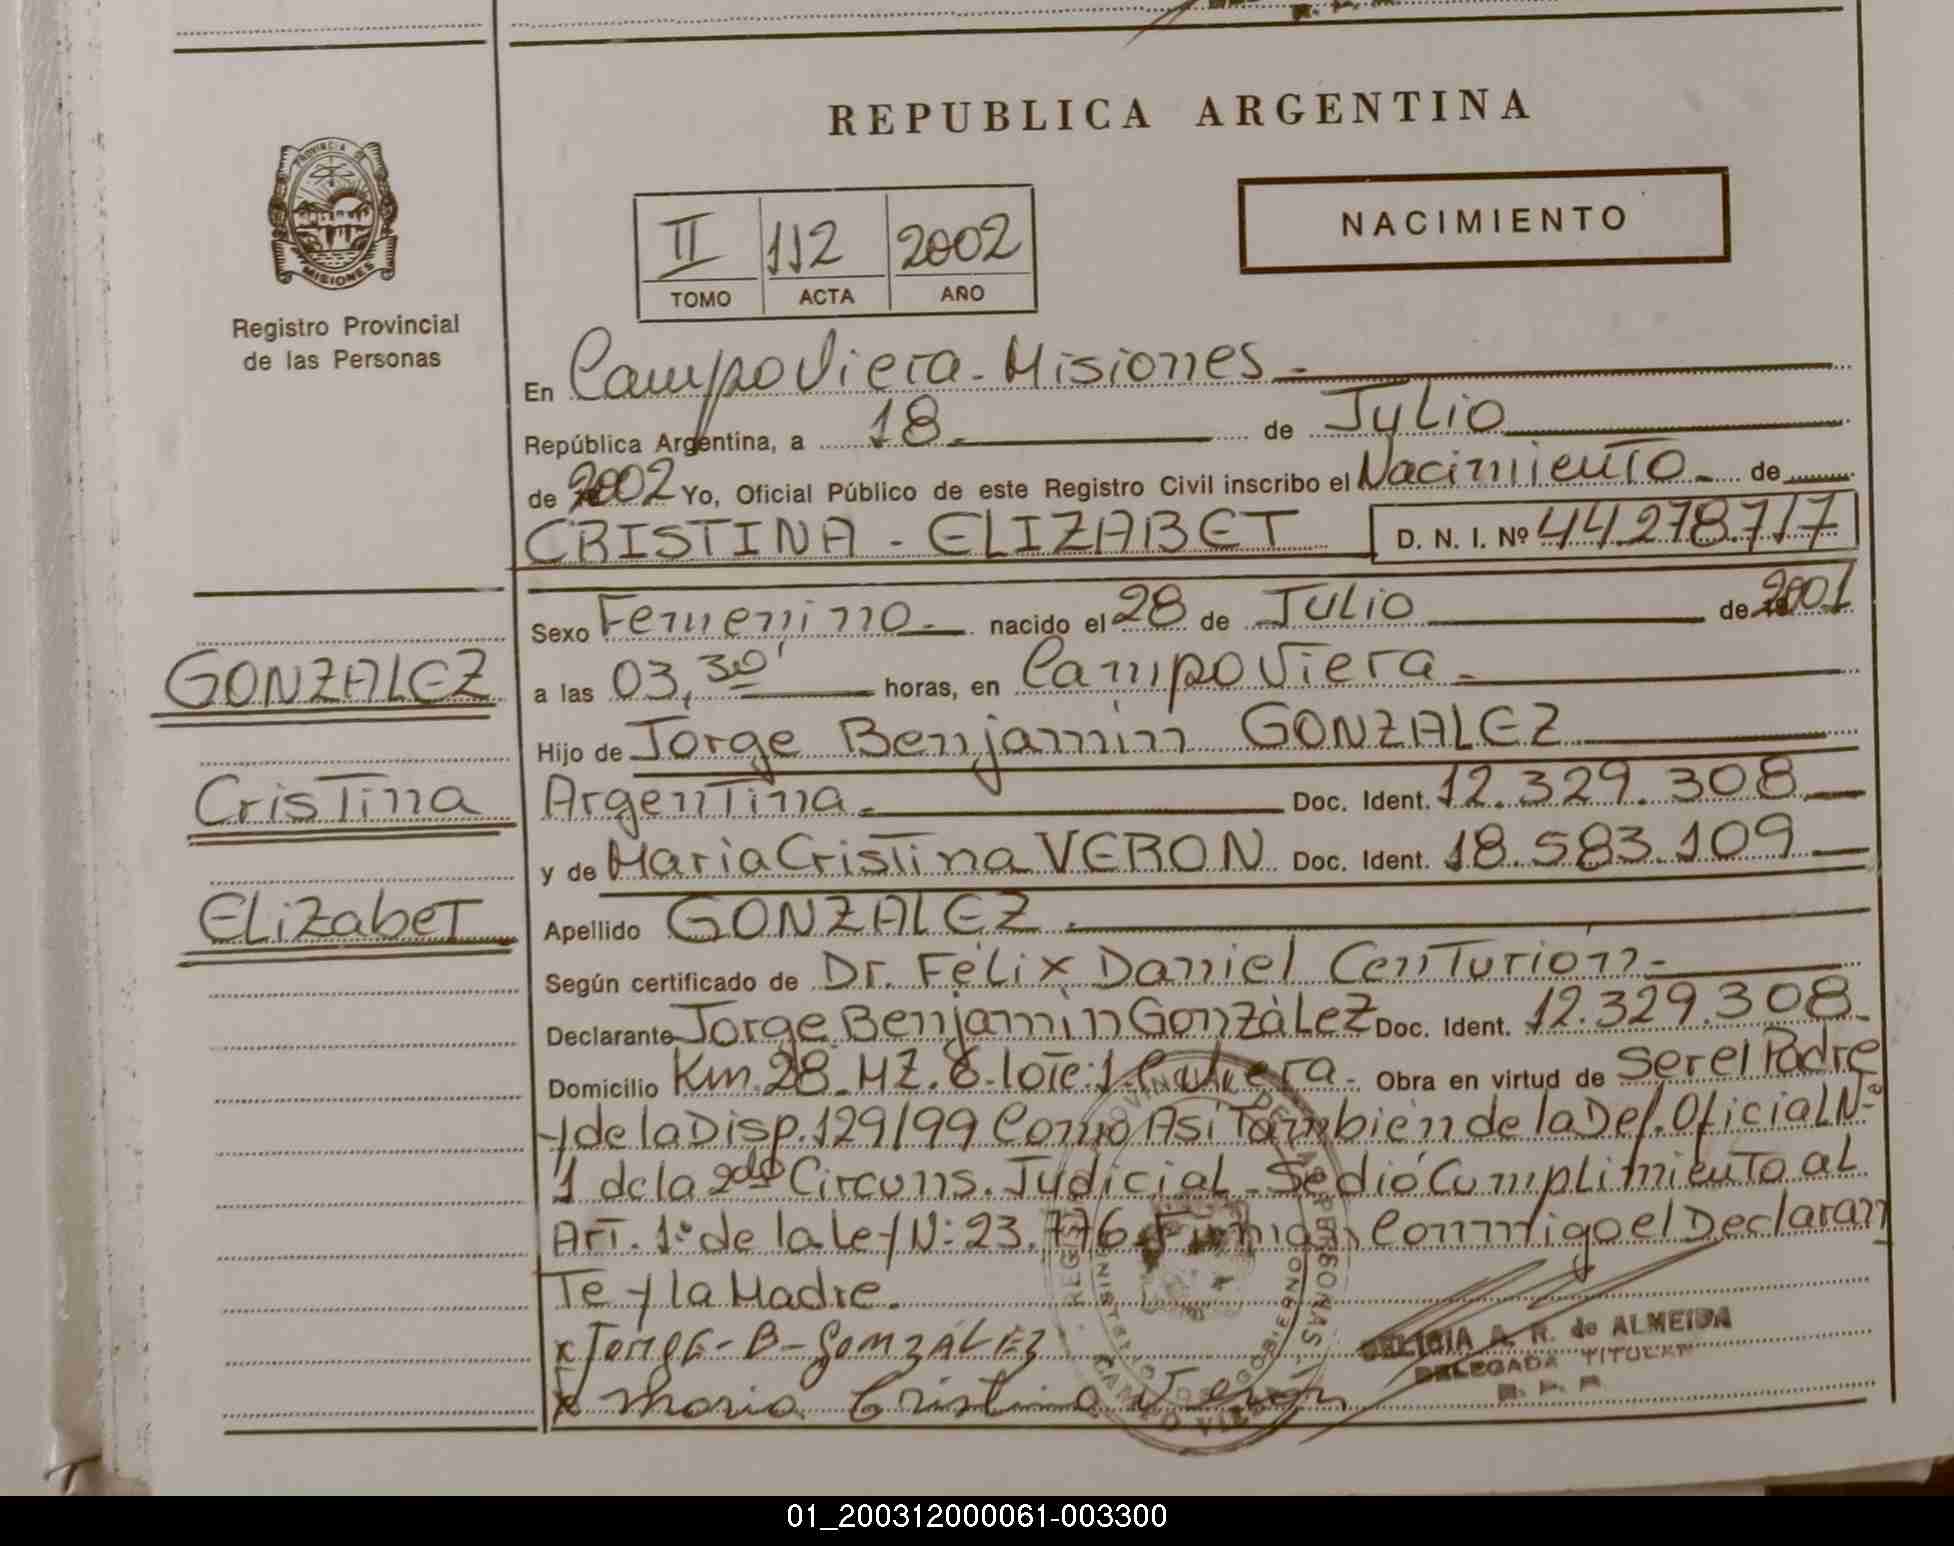 REPUBLICA ARGENTINA
PROVINCIA DE
MISIONES
Registro Provincial
de las Personas
NACIMIENTO
II 112 2002
TOMO ACTA AÑO
En Campo Viera - Misiones -
República Argentina, a 18 - de Julio
de 2002 Yo, Oficial Público de este Registro Civil inscribo el Nacimiento - de
CRISTINA - ELIZABET D. N. I. Nº 44.278.717
Sexo Femenino - nacido el 28 de Julio de 2001
a las 03,30' horas, en Campo Viera -
Hijo de Jorge Benjamin GONZALEZ
Argentina - Doc. Ident. 12.329.308 -
y de Maria Cristina VERON Doc. Ident. 18.583.109 -
Apellido GONZALEZ -
Según certificado de Dr. Félix Daniel Centurión -
Declarante Jorge Benjamin Gonzàlez Doc. Ident. 12.329.308 -
Domicilio Km. 28 - MZ. 6 - lote: 1 - Obra en virtud de Ser el Padre
y de la Disp. 129/99 Como Asi También de la Def. Oficial Nº
1 de la 2da Circuns. Judicial - Se dió Cumplimiento al
Art. 1º de la Ley N: 23.776. Firman Conmigo el Declaran
Te y la Madre.
x JORGE - B - GONZÁLEZ
x Maria Cristina Verón
GONZALEZ
Cristina
Elizabet
A. R. de ALMEIDA
DELEGADA TITULAR
R. P. P.
01_200312000061-003300